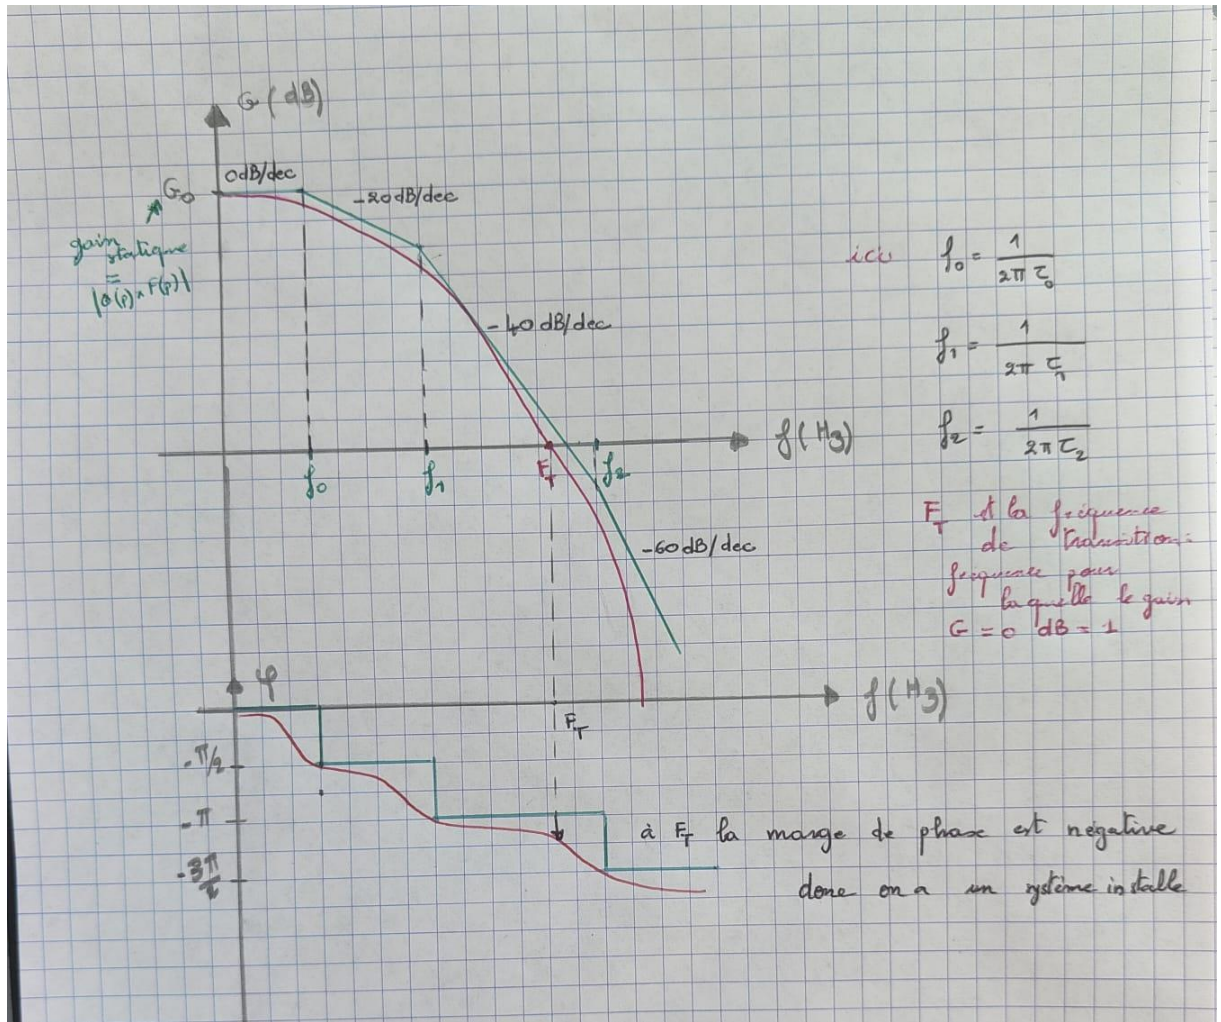 G (dB)
0dB/dec
G₀
-20dB/dec
gain
statique
=
|θ(p) × F(p)|
-40dB/dec
ici f₀ = 1/(2π τ₀)
f₁ = 1/(2π τ₁)
f₂ = 1/(2π τ₂)
f(Hz)
f₀
f₁
F_T
f₂
-60dB/dec
F_T et la fréquence
de transition:
fréquence pour
laquelle le gain
G = 0 dB = 1
φ
f(Hz)
F_T
-π/2
-π
-3π/2
à F_T la marge de phase est négative
donc on a un système instable